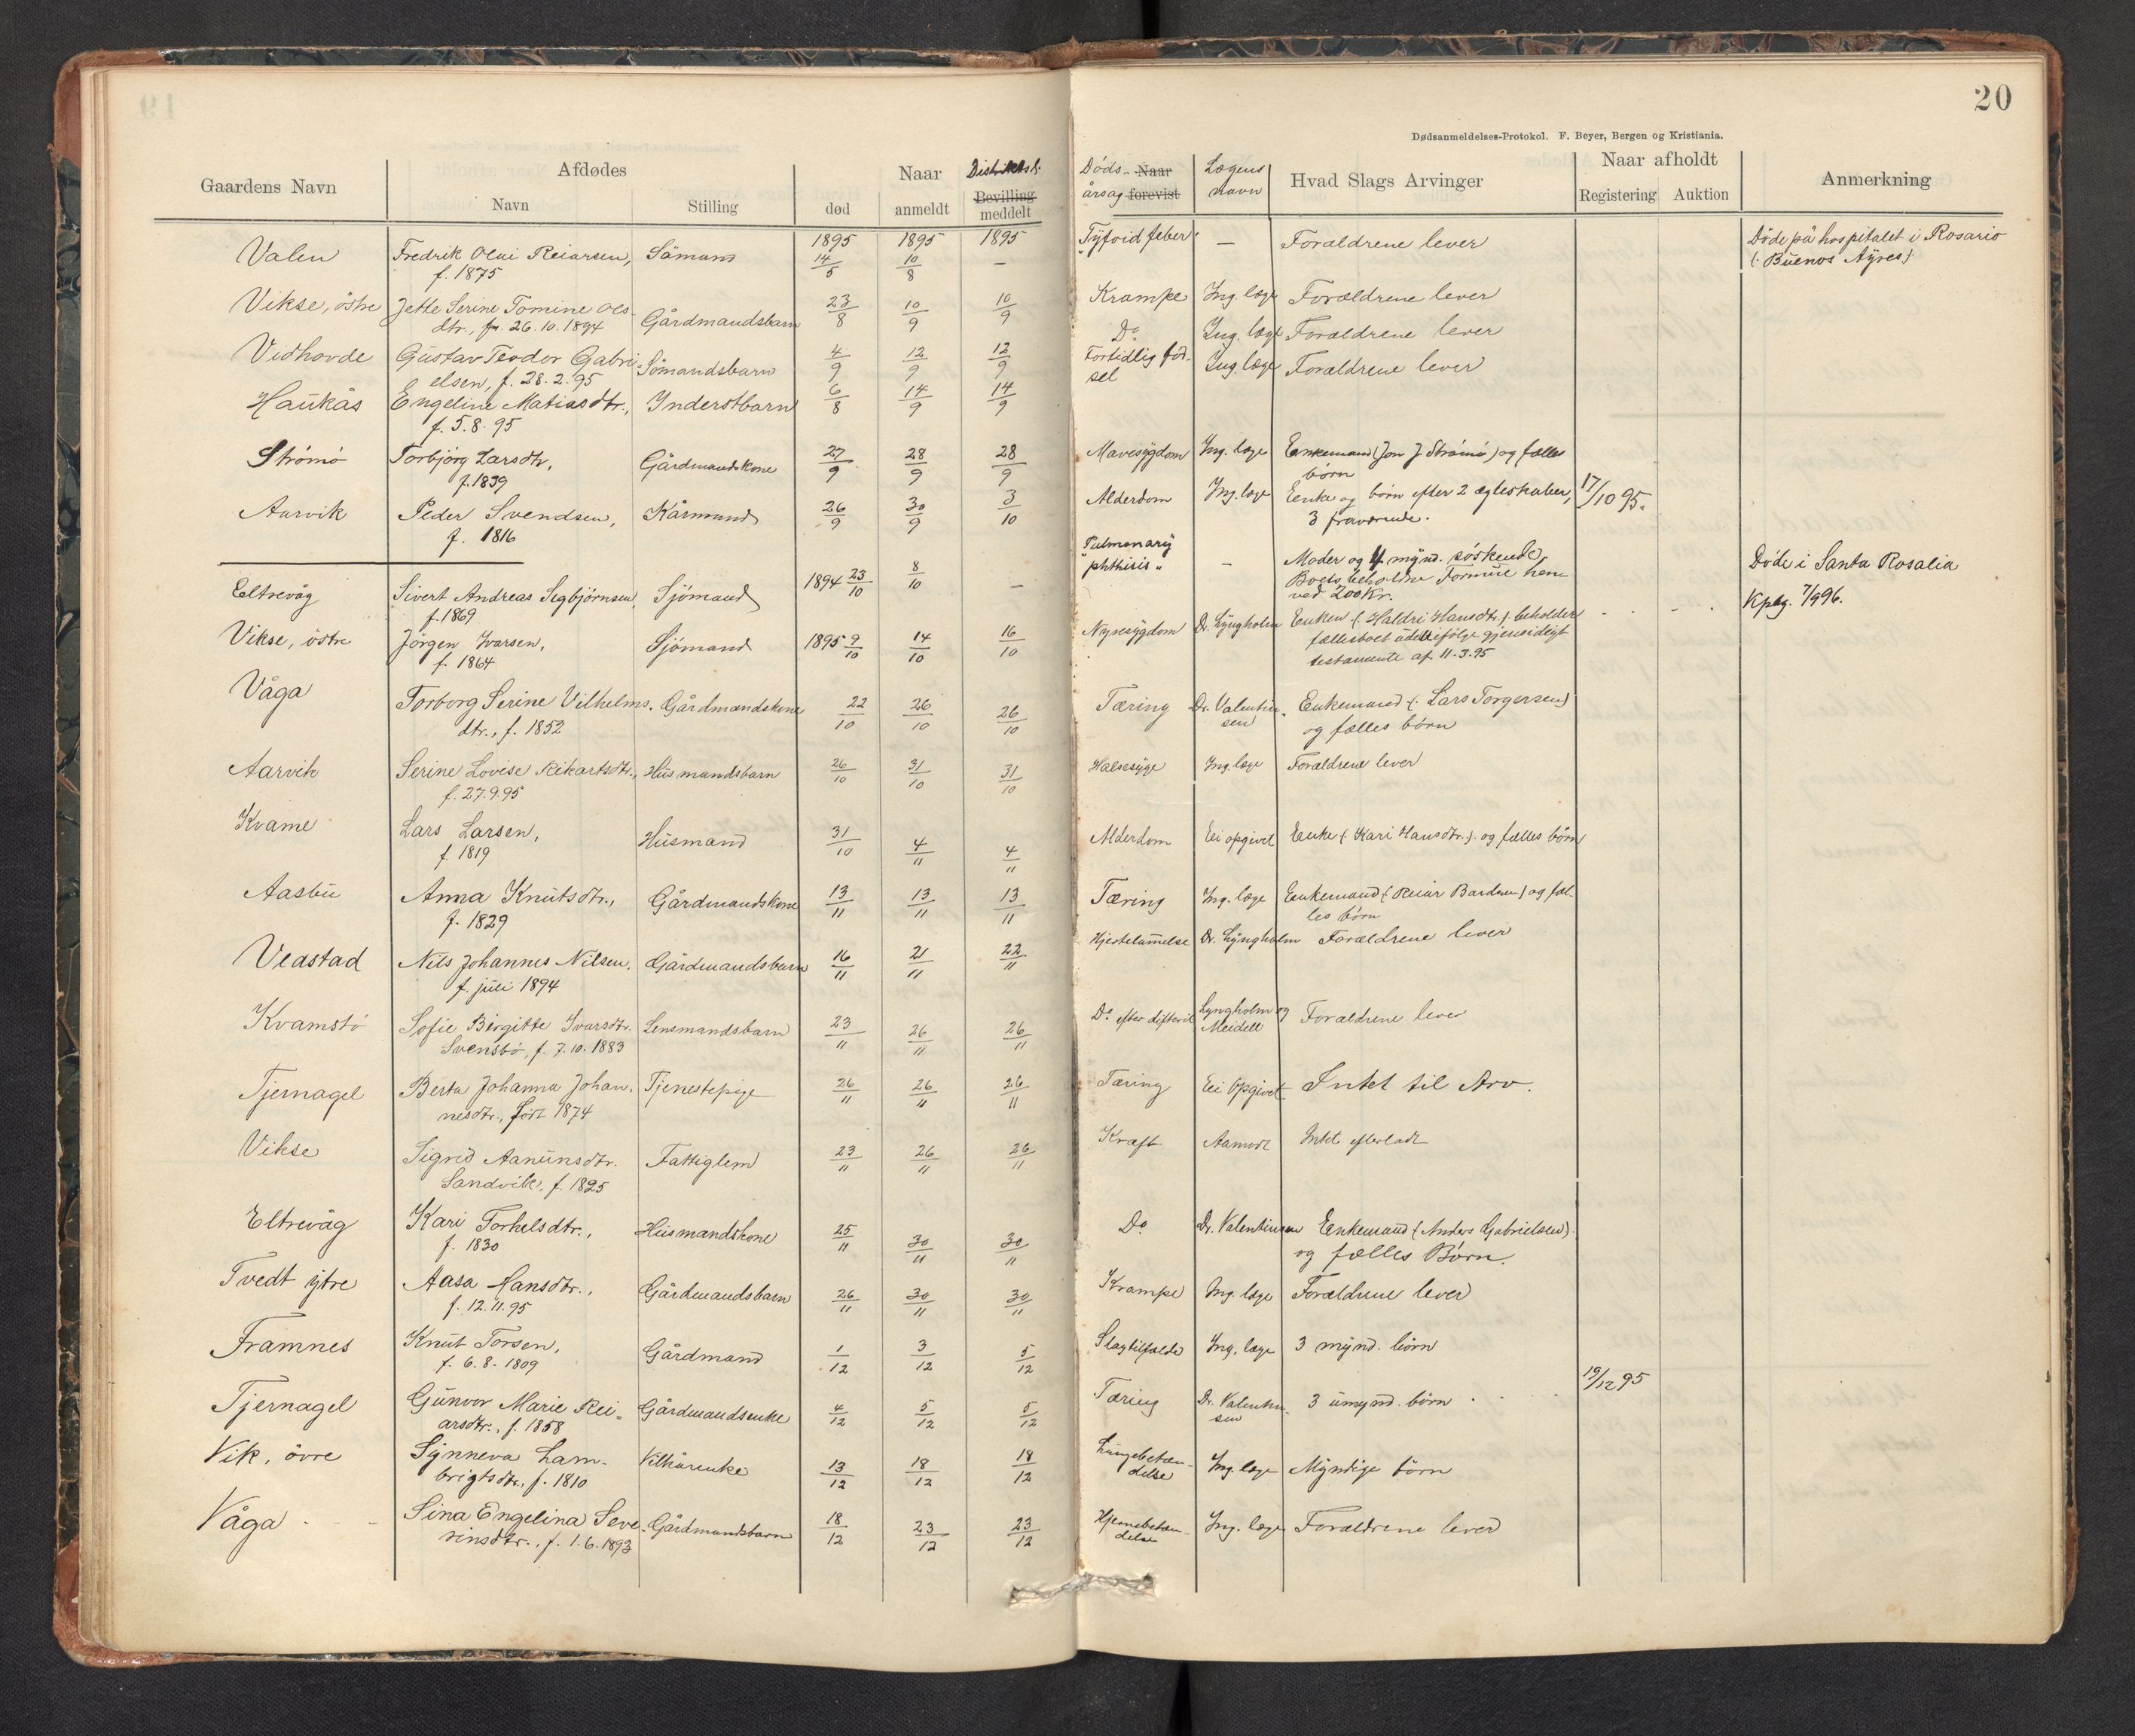 20
Dødsanmeldelses-Protokol. F. Beyer, Bergen og Kristiania.
Gaardens Navn
Afdødes
Navn
Stilling
Naar
død
anmeldt
Bevilling
meddelt
Døds- Naar
årsag forevist
Lægens
navn
Hvad Slags Arvinger
Naar afholdt
Registering
Auktion
Anmerkning
1895 1895 1895
Valen Fredrik Olai Reiarsen, Sömann 14/5 10/8 — Tyfoid feber — Forældrene lever Döde på hospitalet i Rosario
f. 1875 (: Buenos Ayres :)
Vikse, östre Jette Serine Tomine Ols- Gårdmandsbarn 23/8 10/9 10/9 Krampe Ing. læge Forældrene lever
dtr., f. 26.10.1894
Vidhovde Gustav Teodor Gabri- Sömandsbarn 4/9 12/9 12/9 Do Ing. læge Forældrene lever
elsen, f. 28.2.95
Haukås Engeline Matiasdtr., Inderstbarn 6/8 14/9 14/9 Fortidlig fød- Ing. læge Forældrene lever
f. 5.8.95 sel
Strömö Torbjörg Larsdtr, Gårdmandskone 27/9 28/9 28/9 Mavesygdom Ing. læge Enkemand (Jon J. Strömö) og fælles
f. 1839 börn
Aarvik Peder Svendsen, Kårmand 26/9 30/9 3/10 Alderdom Ing. læge Enke og börn efter 2 ægteskaber, 17/10 95.
f. 1816 3 fraværende.
Eltrevåg Sivert Andreas Sigbjørnsen, Sjömand 1894 23/10 8/10 — Pulmonary — Moder og 4 mynd. söskende. Döde i Santa Rosalia
f. 1869 phthisis" Boets beholdne Formue hen-
ved 200 Kr. 7/9 96.
Vikse, östre Jörgen Ivarsen, Sjömand 1895 9/10 14/10 16/10 Nyresygdom Dr. Lyngholm Enken (: Haldri Hansdtr :) beholder
f. 1864 fællesboet udelt ifölge gjensidigt
testamente af 11.3.95
Våga Torborg Serine Vilhelms- Gårdmandskone 22/10 26/10 26/10 Tæring Dr. Valentin- Enkemand (: Lars Torgersen)
dtr., f. 1852 sen og fælles börn
Aarvik Serine Lovise Rikartsdtr., Husmandsbarn 26/10 31/10 31/10 Halsesyge Ing. læge Forældrene lever
f. 27.9.95
Kvame Lars Larsen, Husmand 31/10 4/11 4/11 Alderdom Ei opgivet Enke (: Kari Hansdtr. :) og fælles börn
f. 1819
Aasbu Anna Knutsdtr., Gårdmandskone 13/11 13/11 13/11 Tæring Ing. læge Enkemand (: Reiar Bardsen) og fæl-
f. 1829 les börn
Veastad Nils Johannes Nilsen, Gårdmandsbarn 16/11 21/11 22/11 Hjertelammelse Dr. Lyngholm Forældrene lever
f. juli 1894
Kvamstö Sofie Birgitte Ivarsdtr. Lensmandsbarn 23/11 26/11 26/11 Do efter difterit Lyngholm og Forældrene lever
Svensbö, f. 7.10.1883 Meidell
Tjernagel Berta Johanna Johan- Tjenestepige 26/11 26/11 26/11 Tæring Ei Opgivet Intet til Arv.
nesdtr., född 1874
Vikse Sigrid Aanunsdtr. Fattiglem 23/11 26/11 26/11 Kræft Intet efterladt
Sandvik, f. 1825
Eltrevåg Kari Torkelsdtr., Husmandskone 25/11 30/11 30/11 Do. Dr. Valentinsen Enkemand (: Anders Gabrielsen)
f. 1830 og fælles Börn.
Tvedt ytre Aasa Hansdtr., Gårdmandsbarn 26/11 30/11 30/11 Krampe Ing. læge Forældrene lever
f. 12.11.95
Framnes Knut Torsen, Gårdmand 1/12 3/12 5/12 Slagtilfælde Ing. læge 3 mynd. börn
f. 6.8.1809
Tjernagel Gunvor Marie Rei- Gårdmandsenke 4/12 5/12 5/12 Tæring Dr. Valentin- 3 umynd. börn 19/12 95
arsdtr., f. 1858 sen
Vik, övre Synneva Lam- Vilkårenke 13/12 18/12 18/12 Lungebetæn- Ing. læge Myndige börn
brigtsdtr., f. 1810 delse
Våga Sina Engelina Seve- Gårdmandsbarn 18/12 23/12 23/12 Hjernebetæn- Ing. læge Forældrene lever
rinsdtr., f. 1.6.1893 delse